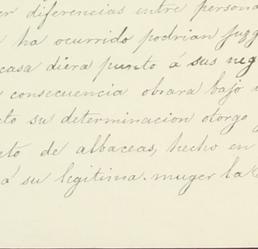 er diferencias entre persona
ha ocurrido podrian juzg
casa diera punto á sus neg
consecuencia obrara bajo
to su determinacion otorgo
to de albaceas, hecho en
á su legitima muger la